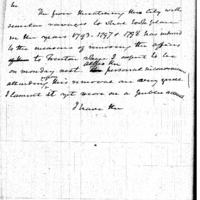 Sir
The fever threatening this city with
similar ravages to that took place
in the years 1793. 1797 & 1798 has induced
to the measure of removing the offices
to Trenton I expect to be
on monday next
attending this removal are very great
I lament it yet more on a public account
I have the